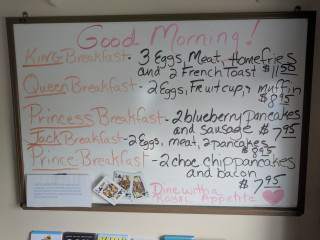 Good Morning!
King Breakfast - 3 Eggs, Meat, Homefries
and 2 French Toast $11.50
Queen Breakfast - 2 Eggs, Fruitcup, + muffin
$8.95
Princess Breakfast - 2 blueberry Pancakes
and sausage $7.95
Jack Breakfast - 2 Eggs, meat, 2 pancakes
$8.95
Prince Breakfast - 2 choc chip pancakes
and bacon
$7.95
Dine with a
Royal Appetite